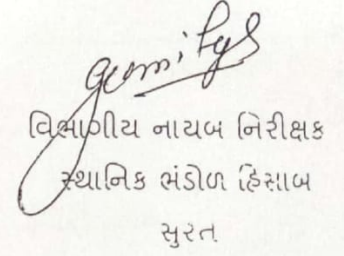 વિભાગીય નાયબ નિરીક્ષક
સ્થાનિક ભંડોળ હિસાબ
સુરત